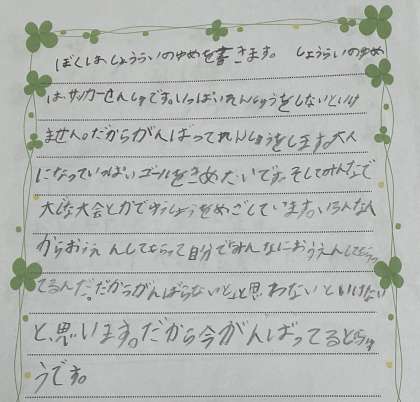 ぼくはしょうらいのゆめを書きます。しょうらいのゆめ
は、サッカーせんしゅです。いっぱいれんしゅうをしないといけ
ません。だからがんばってれんしゅうをします。大人
になっていっぱいゴールをきめたいです。そしてみんなで
大じな大会とかでゆうしょうをめざしています。いろんな人
からおうえんしてもらって自分でみんなにおうえんしてもらっ
てるんだ。だからがんばらないと、と思わないといけない
と、思います。だから今がんばってると
うです。